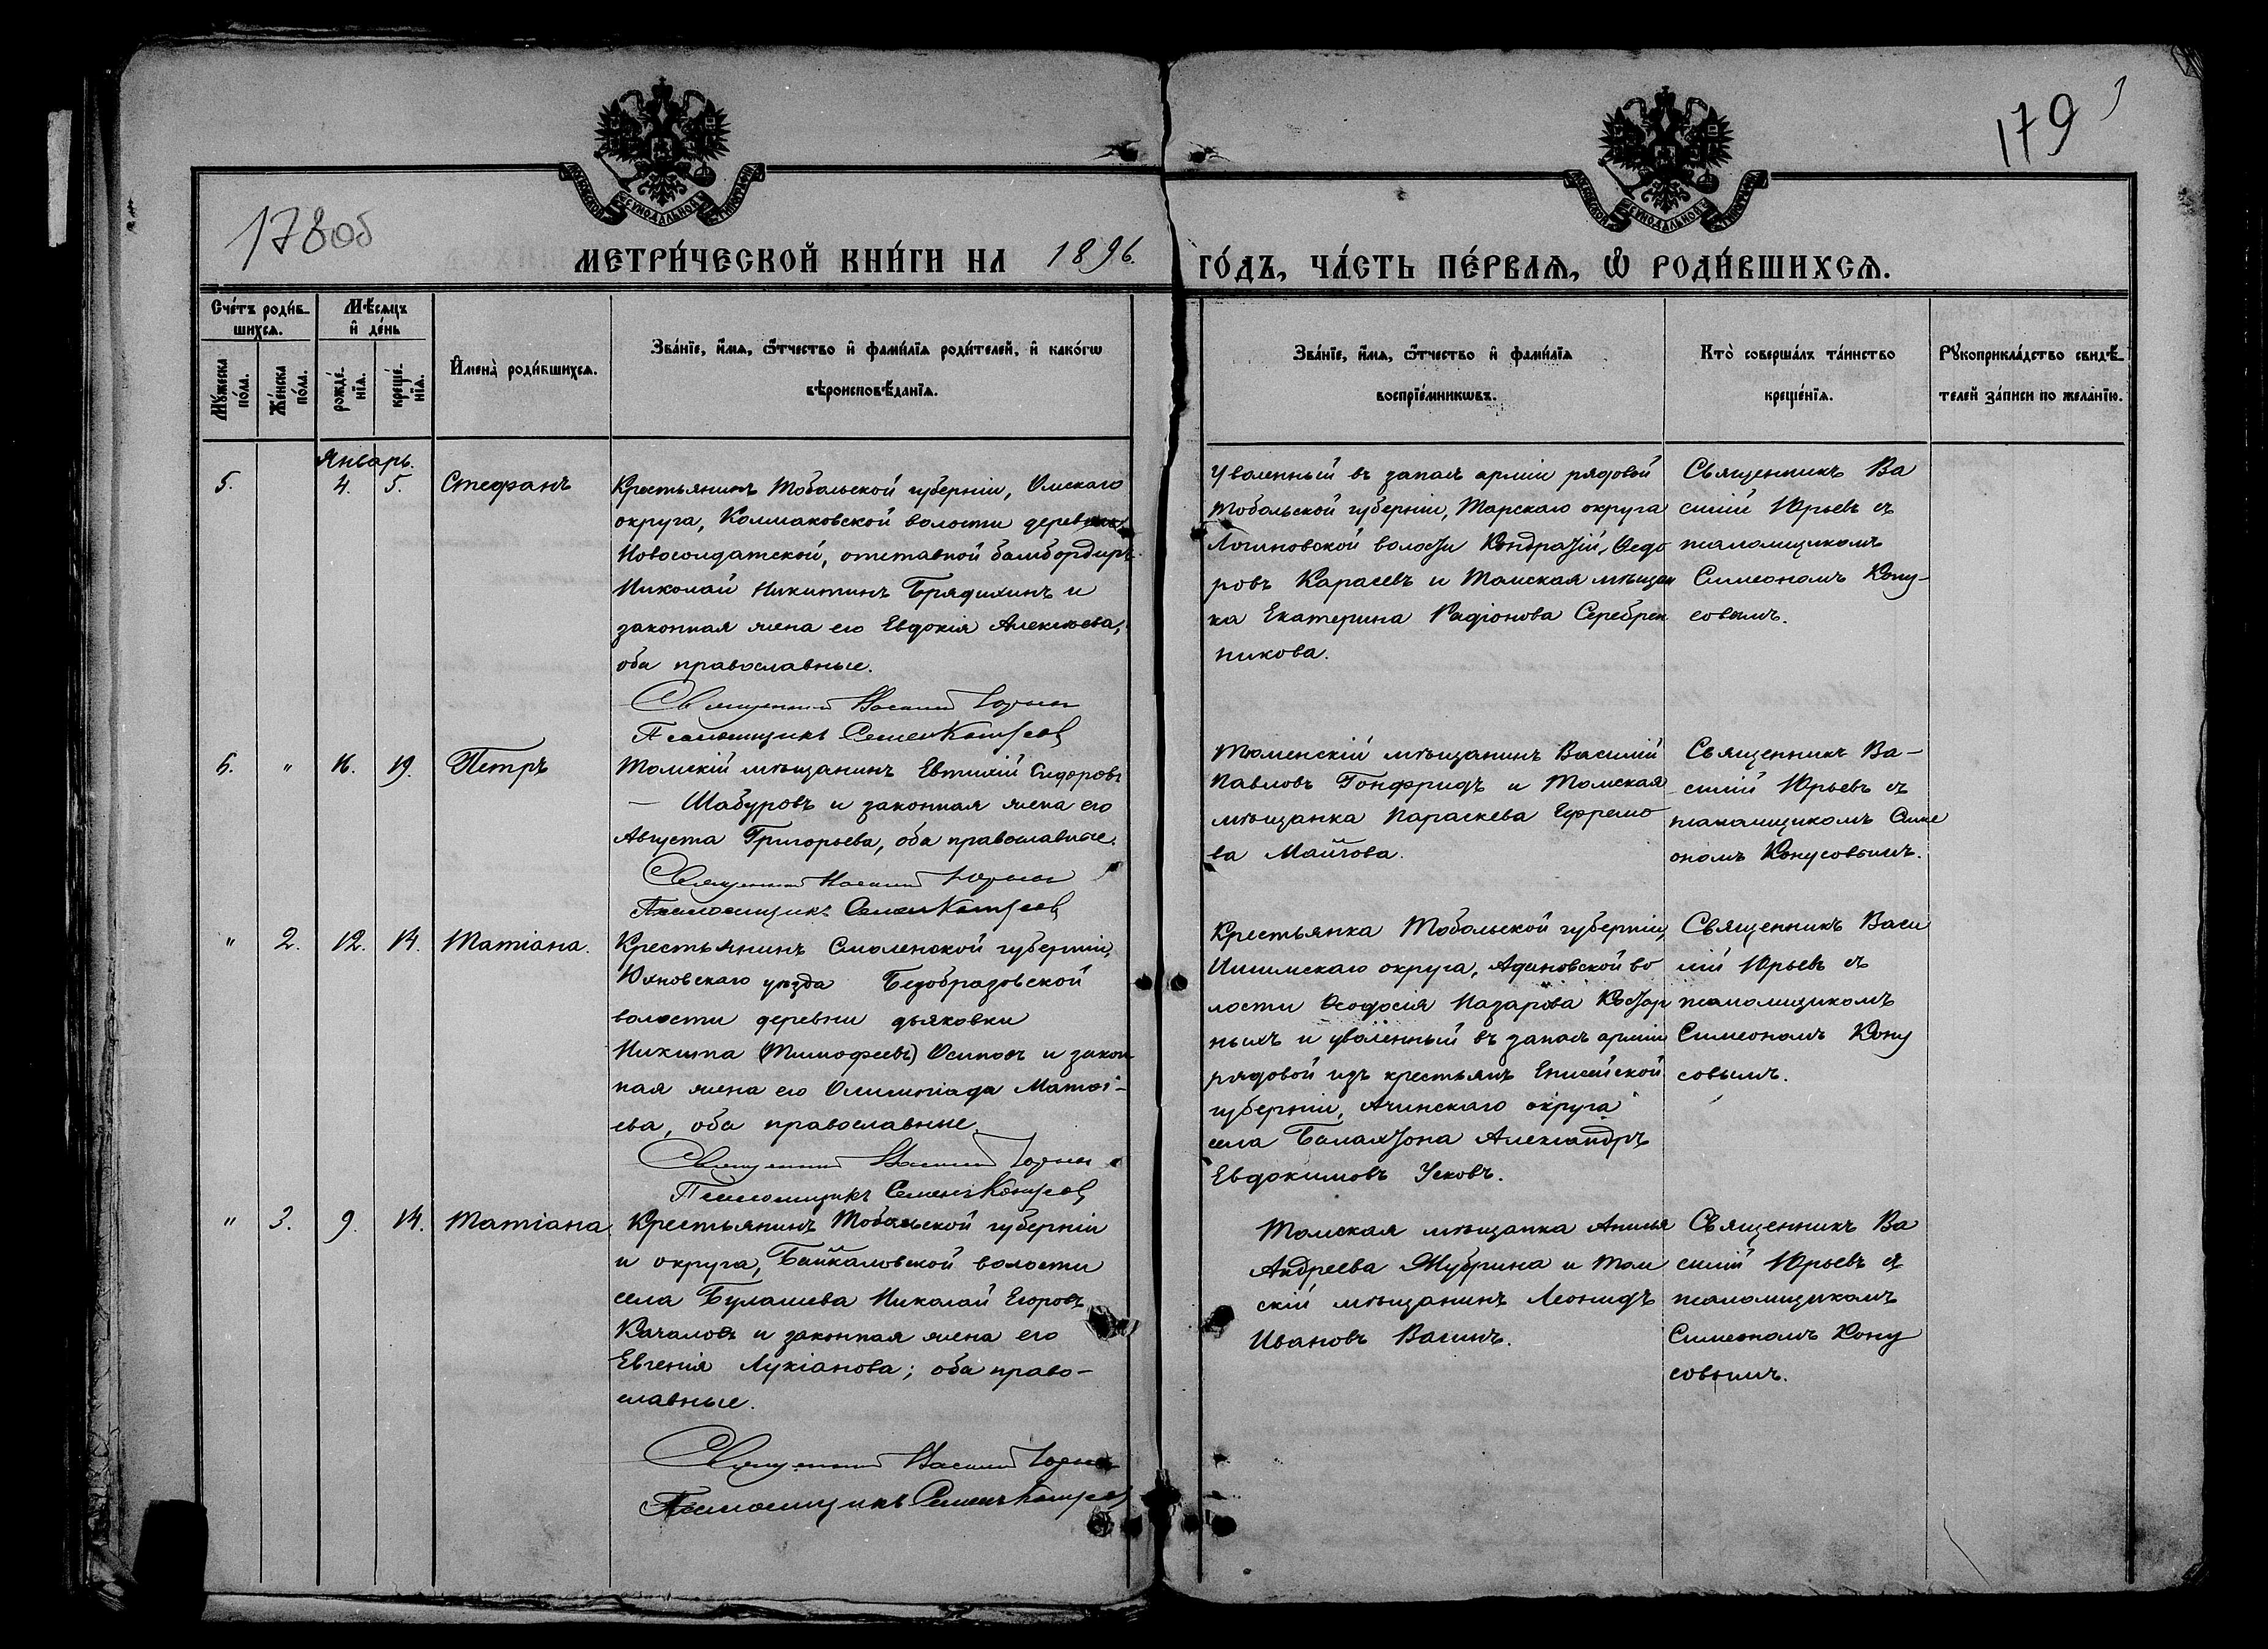 179
178об
МЕТРИ́ЧЕСКОЙ КНИ́ГИ НА 1896. ГО́ДЪ, ЧА́СТЬ ПЕ́РВАѦ, Ѡ҆ РОДИ́ВШИХСѦ.
Сче́тъ роди́в-
шихсѧ.
Мѣ́сѧцъ
и҆ де́нь
Мꙋ́жеска
по́ла.
Же́нска
по́ла.
рожде́-
нїѧ.
креще́-
нїѧ.
И҆мена̀ роди́вшихсѧ.
Зва́нїе, и҆́мѧ, ѻ҆́тчество и҆ фами́лїѧ роди́телей, и҆ како́гѡ
вѣроисповѣ́данїѧ.
Зва́нїе, и҆́мѧ, ѻ҆́тчество и҆ фами́лїѧ
воспрїе́мникѡвъ.
Кто̀ соверша́лъ та́инство
креще́нїѧ.
Рꙋкоприкла́дство свидѣ́-
телей за́писи по жела́нїю.
Январь.
5. 4. 5. Стефанъ
Крестьянинъ Тобольской губерніи, Омскаго
округа, Колмаковской волости деревни
Новосолдатской, отставной бамбордиръ
Николай Никитинъ Брядихинъ и
законная жена его Евдокія Алексѣева,
оба православные.
Священник Василий Юрьев
Псаломщикъ Семен Конусов
Уволенный въ запасъ арміи рядовой
Тобольской губерніи, Тарскаго округа
Логиновской волости Кондратій Ѳедо
ровъ Карасевъ и Томская мѣщан
ка Екатерина Радіонова Серебрен
никова.
Священникъ Ва
силій Юрьевъ съ
псаломщикомъ
Симеономъ Кону-
совымъ.
6. " 16. 19. Петръ
Томскій мѣщанинъ Евтихій Сидоровъ
— Шабуровъ и законная жена его
Августа Григорьева, оба православные.
Священник Василий Юрьев
Псаломщикъ Семен Конусов
Тюменскій мѣщанинъ Василій
Павловъ Гонфридъ и Томская
мѣщанка Параскева Ефремо
ва Майкова.
Священникъ Ва-
силій Юрьевъ съ
псаломщикомъ Симе
ономъ Конусовымъ.
" 2. 12. 14. Татіана.
Крестьянинъ Смоленской губерніи,
Юхновскаго уѣзда Безобразовской
волости деревни дьяковки
Никита (Тимофеевъ) Осиповъ и закон
ная жена его Олимпіада Матѳі-
ева, оба православные.
Священник Василий Юрьев
Псаломщикъ Семенъ Конусов
Крестьянка Тобольской губерніи,
Ишимскаго округа, волости Ѳеодосія Назарова
и уволенный въ запасъ арміи
рядовой изъ крестьянъ Енисейской
губерніи, Ачинскаго округа
села Балахтона Александръ
Евдокимовъ Усковъ.
Священникъ Васи
лій Юрьевъ съ
псаломщикомъ
Симеономъ Кону
совымъ.
" 3. 9. 14. Татіана.
Крестьянинъ Тобольской губерніи
и округа, Байкаловской волости
села Булашева Николай Егоровъ
Качаловъ и законная жена его
Евгенія Лукіанова; оба право-
славные.
Священник Василий Юрьев
Псаломщикъ Семенъ Конусов
Томская мѣщанка Анисья
Андреева Шубрина и Том
скій мѣщанинъ Леонидъ
Ивановъ Васинъ.
Священникъ Ва
силій Юрьевъ съ
псаломщикомъ
Симеономъ Кону
совымъ.